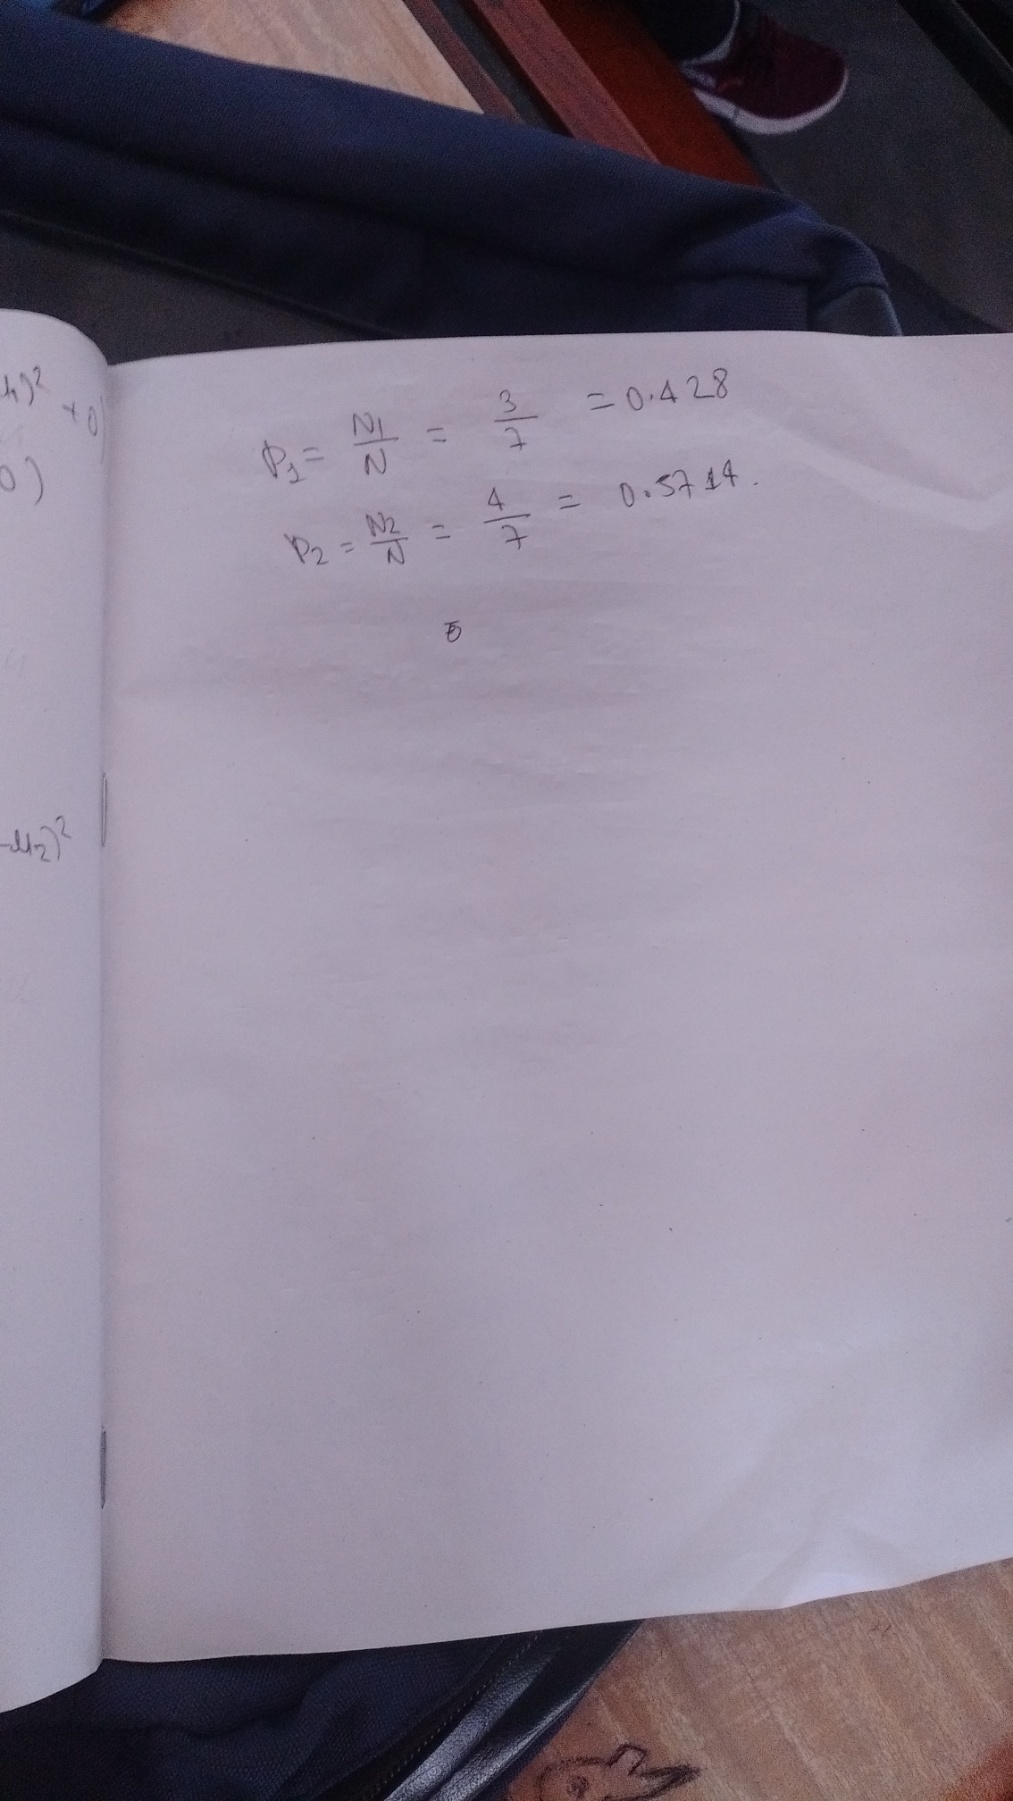 μ₁)² + 0)
0)
-μ₂)²
P₁ = N₁/N = 3/7 = 0.428
P₂ = N₂/N = 4/7 = 0.5714.